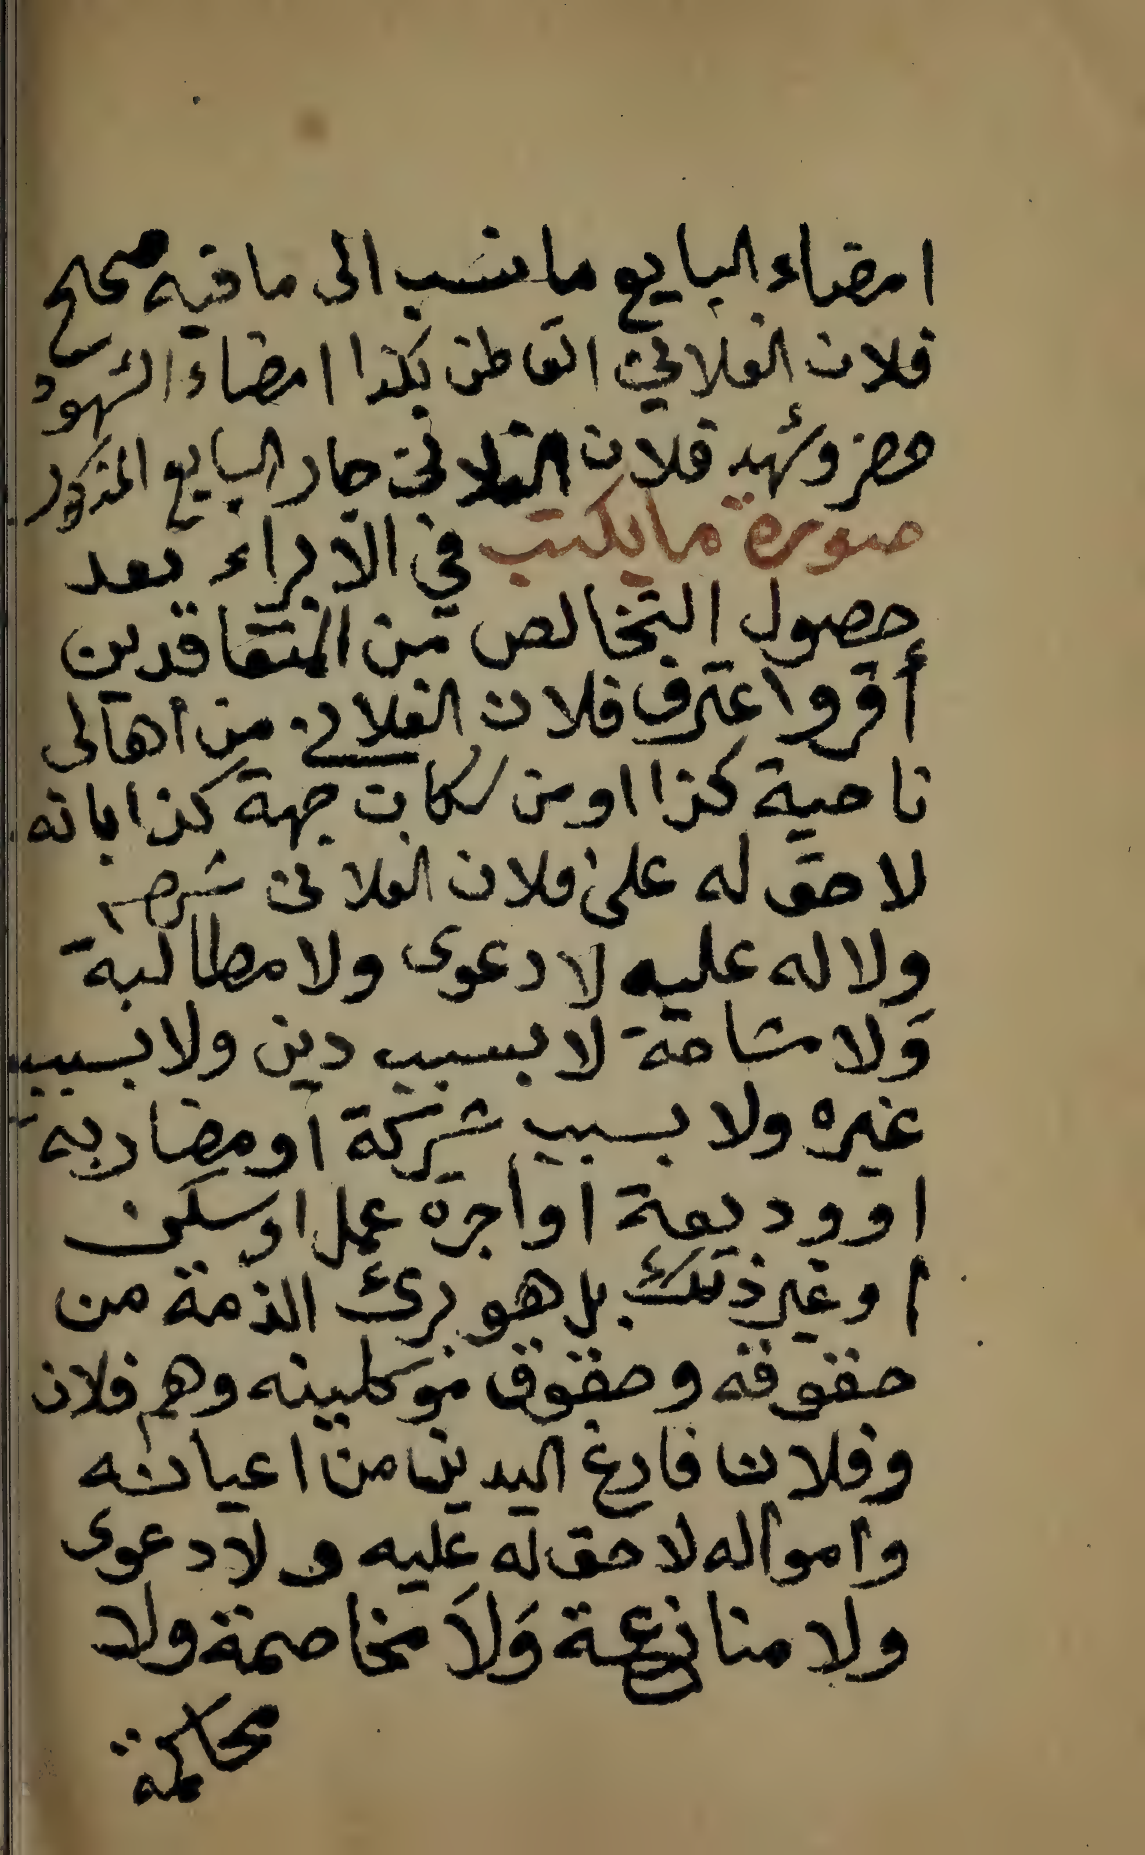 امضاء البايع ما نسب الى ما فيه صحيح
فلان الفلاني القاطن بكذا امضاء الشهود
حضر وشهد فلان الفلاني جار البايع المذكور
صورة ما يكتب في الابراء بعد
حصول التخالص من المتعاقدين
أقر واعترف فلان الفلاني من اهالى
ناحية كذا او من سكان جهة كذا بانه
لا حق له على فلان الفلاني
ولا له عليه لا دعوى ولا مطالبة
وَلا مشاحة لا بسبب دين ولا بسبب
غيره ولا بسبب شركة او مضاربة
او وديعة او اجرة عمل او سكن
او غير ذلك بل هو برئ الذمة من
حقوقه وحقوق موكلينه وهم فلان
وفلان فارغ اليدين من اعيانه
وامواله لا حق له عليه ولا دعوى
ولا منازعة وَلاَ مخاصمة ولا
محاكمة